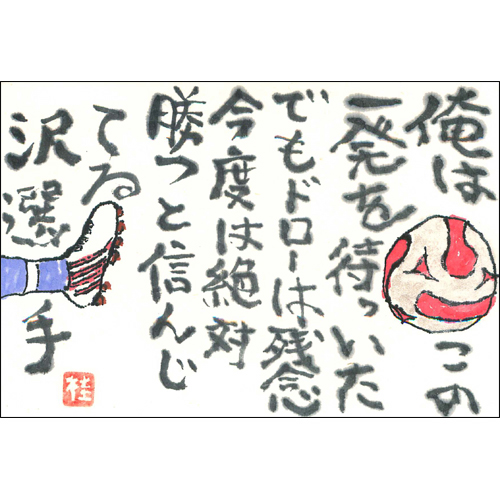 俺はこの
一発を待っいた
でもドローは残念
今度は絶対
勝つと信んじ
てる
沢選手
桂